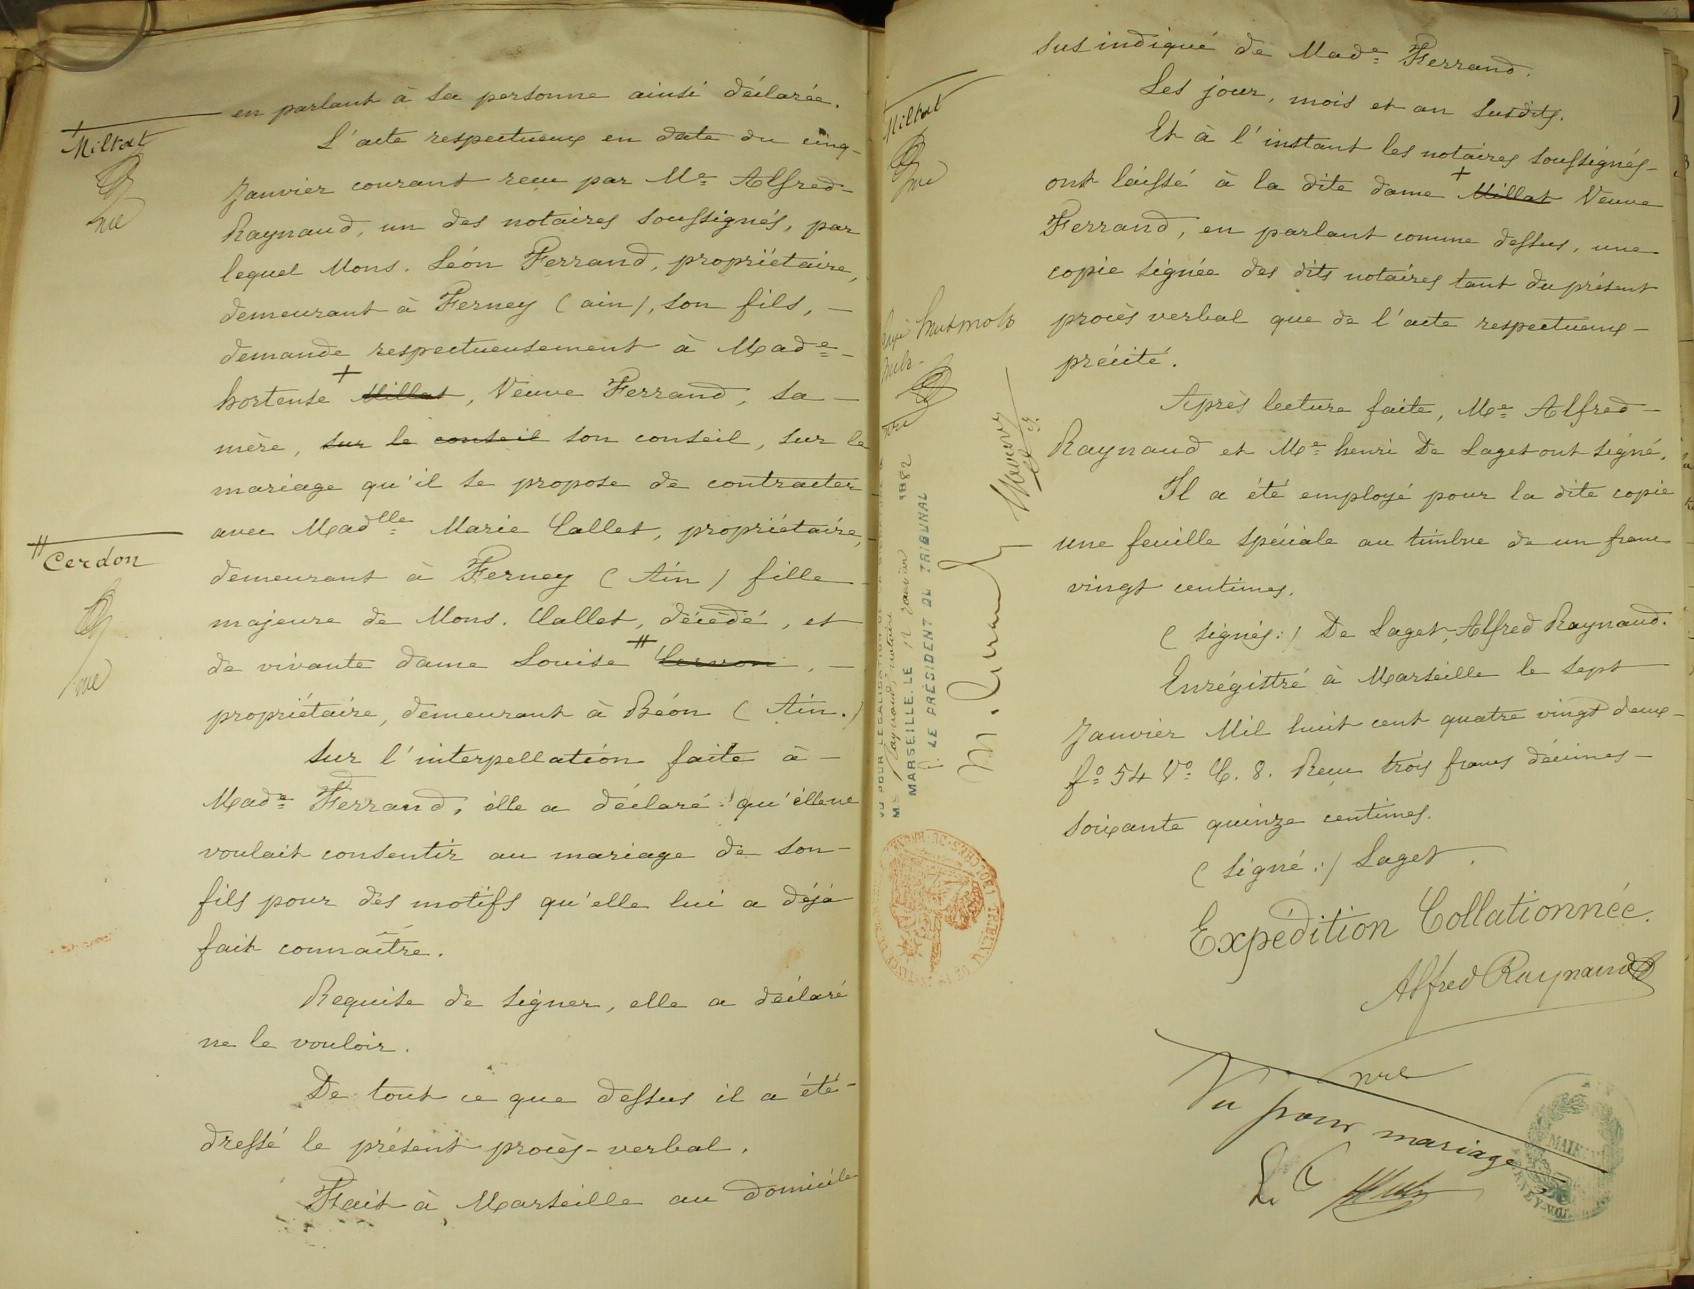 en parlant à sa personne ainsi déclarée.
L'acte respectueux en date du cinq
Janvier courant reçu par Me Alfred
Raynaud, un des notaires soussignés, par
lequel Mons. Léon Ferrand, propriétaire,
demeurant à Ferney (ain), son fils,
demande respectueusement à Made
hortense + Millat, Veuve Ferrand, sa
mère, sur le conseil son conseil, sur le
mariage qu'il se propose de contracter
avec Madlle Marie Callet, propriétaire,
demeurant à Ferney (Ain) fille
majeure de Mons. Callet, décédé, et
de vivante dame Louise # Cervon,
propriétaire, demeurant à Béon (Ain.)
Sur l'interpellation faite à
Made Ferrand, elle a déclaré : qu'elle ne
voulait consentir au mariage de son
fils pour des motifs qu'elle lui a déjà
fait connaître.
Requise de signer, elle a déclaré
ne le vouloir.
De tout ce que dessus il a été
dressé le présent procès-verbal.
Fait à Marseille au domicile
+ Miltat
# Cerdon
sus indiqué de Made Ferrand.
Les jour, mois et an susdits.
Et à l'instant les notaires soussignés
ont laissé à la dite dame + Millat Veuve
Ferrand, en parlant comme dessus, une
copie signée des dits notaires tant du présent
procès verbal que de l'acte respectueux
précité.
Après lecture faite, Me Alfred
Raynaud et Me henri De Laget ont signé.
Il a été employé pour la dite copie
une feuille spéciale au timbre de un franc
vingt centimes.
(signés:) De Laget, Alfred Raynaud.
Enrégistré à Marseille le sept
Janvier Mil huit cent quatre vingt deux
fo 54 Vo C. 8. Reçu trois francs décimes
soixante quinze centimes.
(signé:) Laget.
Expédition Collationnée.
Alfred Raynaud
nre
Vu pour mariage
+ Miltat
VU POUR LEGALISATION DE LA SIGNATURE DE
Me Raynaud, notaire
MARSEILLE, LE 12 Janvier 1882
P. LE PRÉSIDENT DU TRIBUNAL
MAIRIE